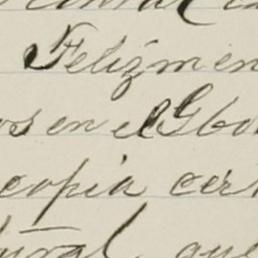 Felizmen
os en el Gbo
copia cer
que